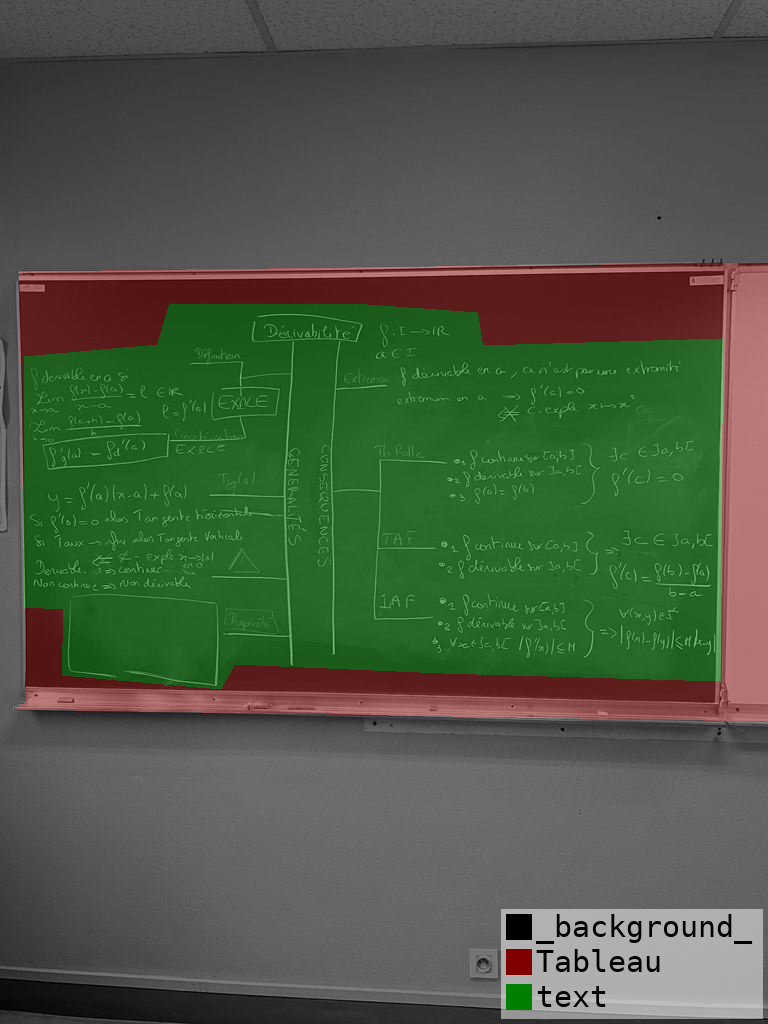 Dérivabilité
f: I → IR
a ∈ I
Définition
f dérivable en a si
Lim x→a f(x)-f(a) / x-a = l ∈ IR
l = f'(a)
Lim h→0 f(a+h)-f(a) / h
EXPLE
f'g(a) = f'd(a)
Caractérisation
EXPLE
GENERALITÉS
CONSEQUENCES
Tg(a)
y = f'(a)(x-a)+f(a)
Si f'(a)=0 alors Tangente horizontale
Si Taux → infini alors Tangente Verticale
Dérivable ⇒ continue
exple x→|x| en 0
Non continue ⇒ Non dérivable
!
Propriétés
Extrema
f dérivable en a, a n'est pas une extrémité
extremum en a ⇒ f'(a)=0
exple x→x³
Th Rolle
•1 f continue sur [a,b]
•2 f dérivable sur ]a,b[
•3 f(a)=f(b)
∃c ∈ ]a,b[
f'(c)=0
TAF
•1 f continue sur [a,b]
•2 f dérivable sur ]a,b[
⇒
∃c ∈ ]a,b[
f'(c) = f(b)-f(a) / b-a
IAF
•1 f continue sur [a,b]
•2 f dérivable sur ]a,b[
•3 ∀x∈]a,b[ |f'(x)|≤M
∀(x,y)∈I²
⇒|f(x)-f(y)|≤M|x-y|
_background_
Tableau
text